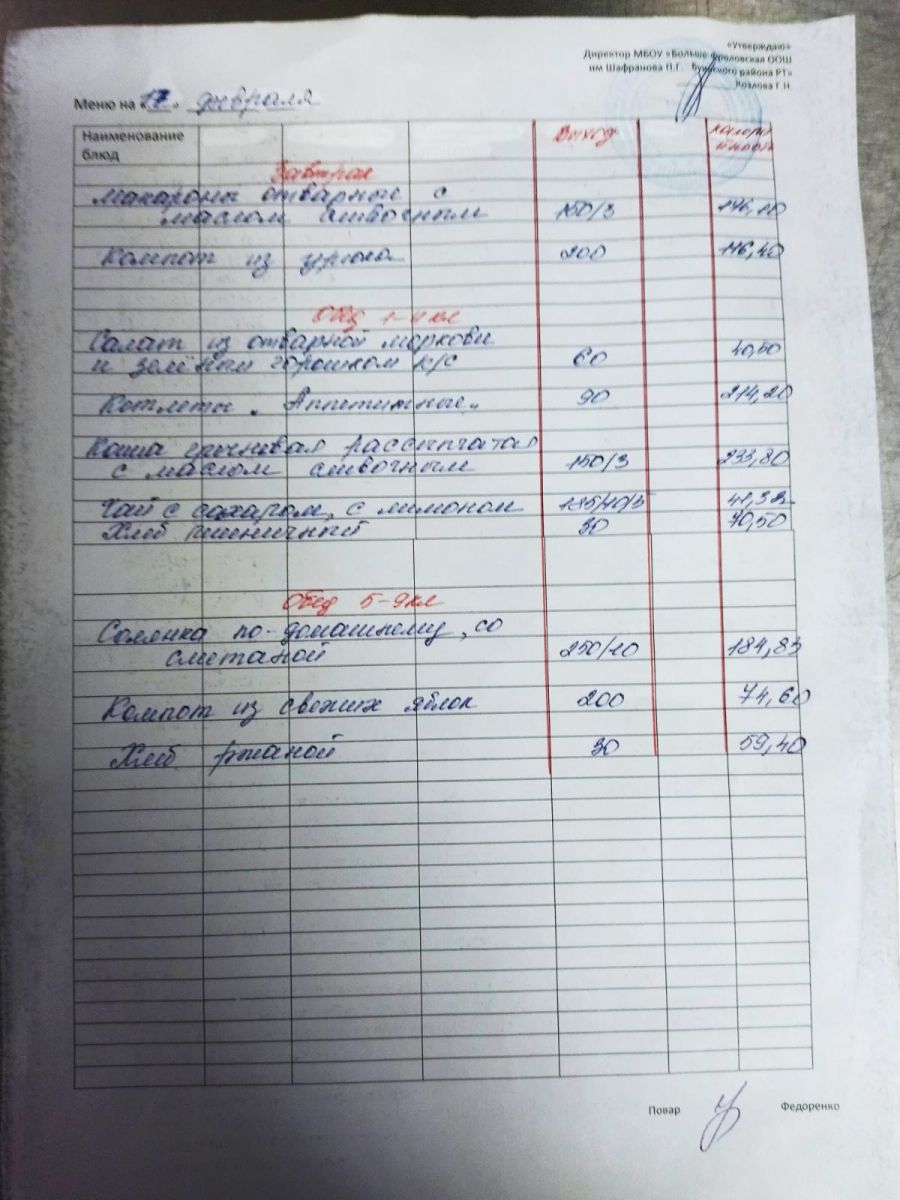 «Утверждаю»
Директор МБОУ «Больше-Фроловская ООШ
им Шафранова П.Г. Буинского района РТ»
Козлова Г.Н
Меню на «17» февраля
Наименование блюд Выход калорийность
Завтрак
Макароны отварные с
маслом сливочным 150/3
Компот из урюка 200 116,40
Обед 1-4 кл
Салат из отварной моркови
и зелёным горошком к/с 60 40,50
Котлеты "Аппетитные" 90 214,20
Каша гречневая рассыпчатая
с маслом сливочным 150/3 233,80
Чай с сахаром, с лимоном 185/10/5 41,32
Хлеб пшеничный 30 70,50
Обед 5-9 кл
Солянка по-домашнему, со
сметаной 250/10 184,83
Компот из свежих яблок 200 74,60
Хлеб ржаной 30 59,40
Повар Федоренко